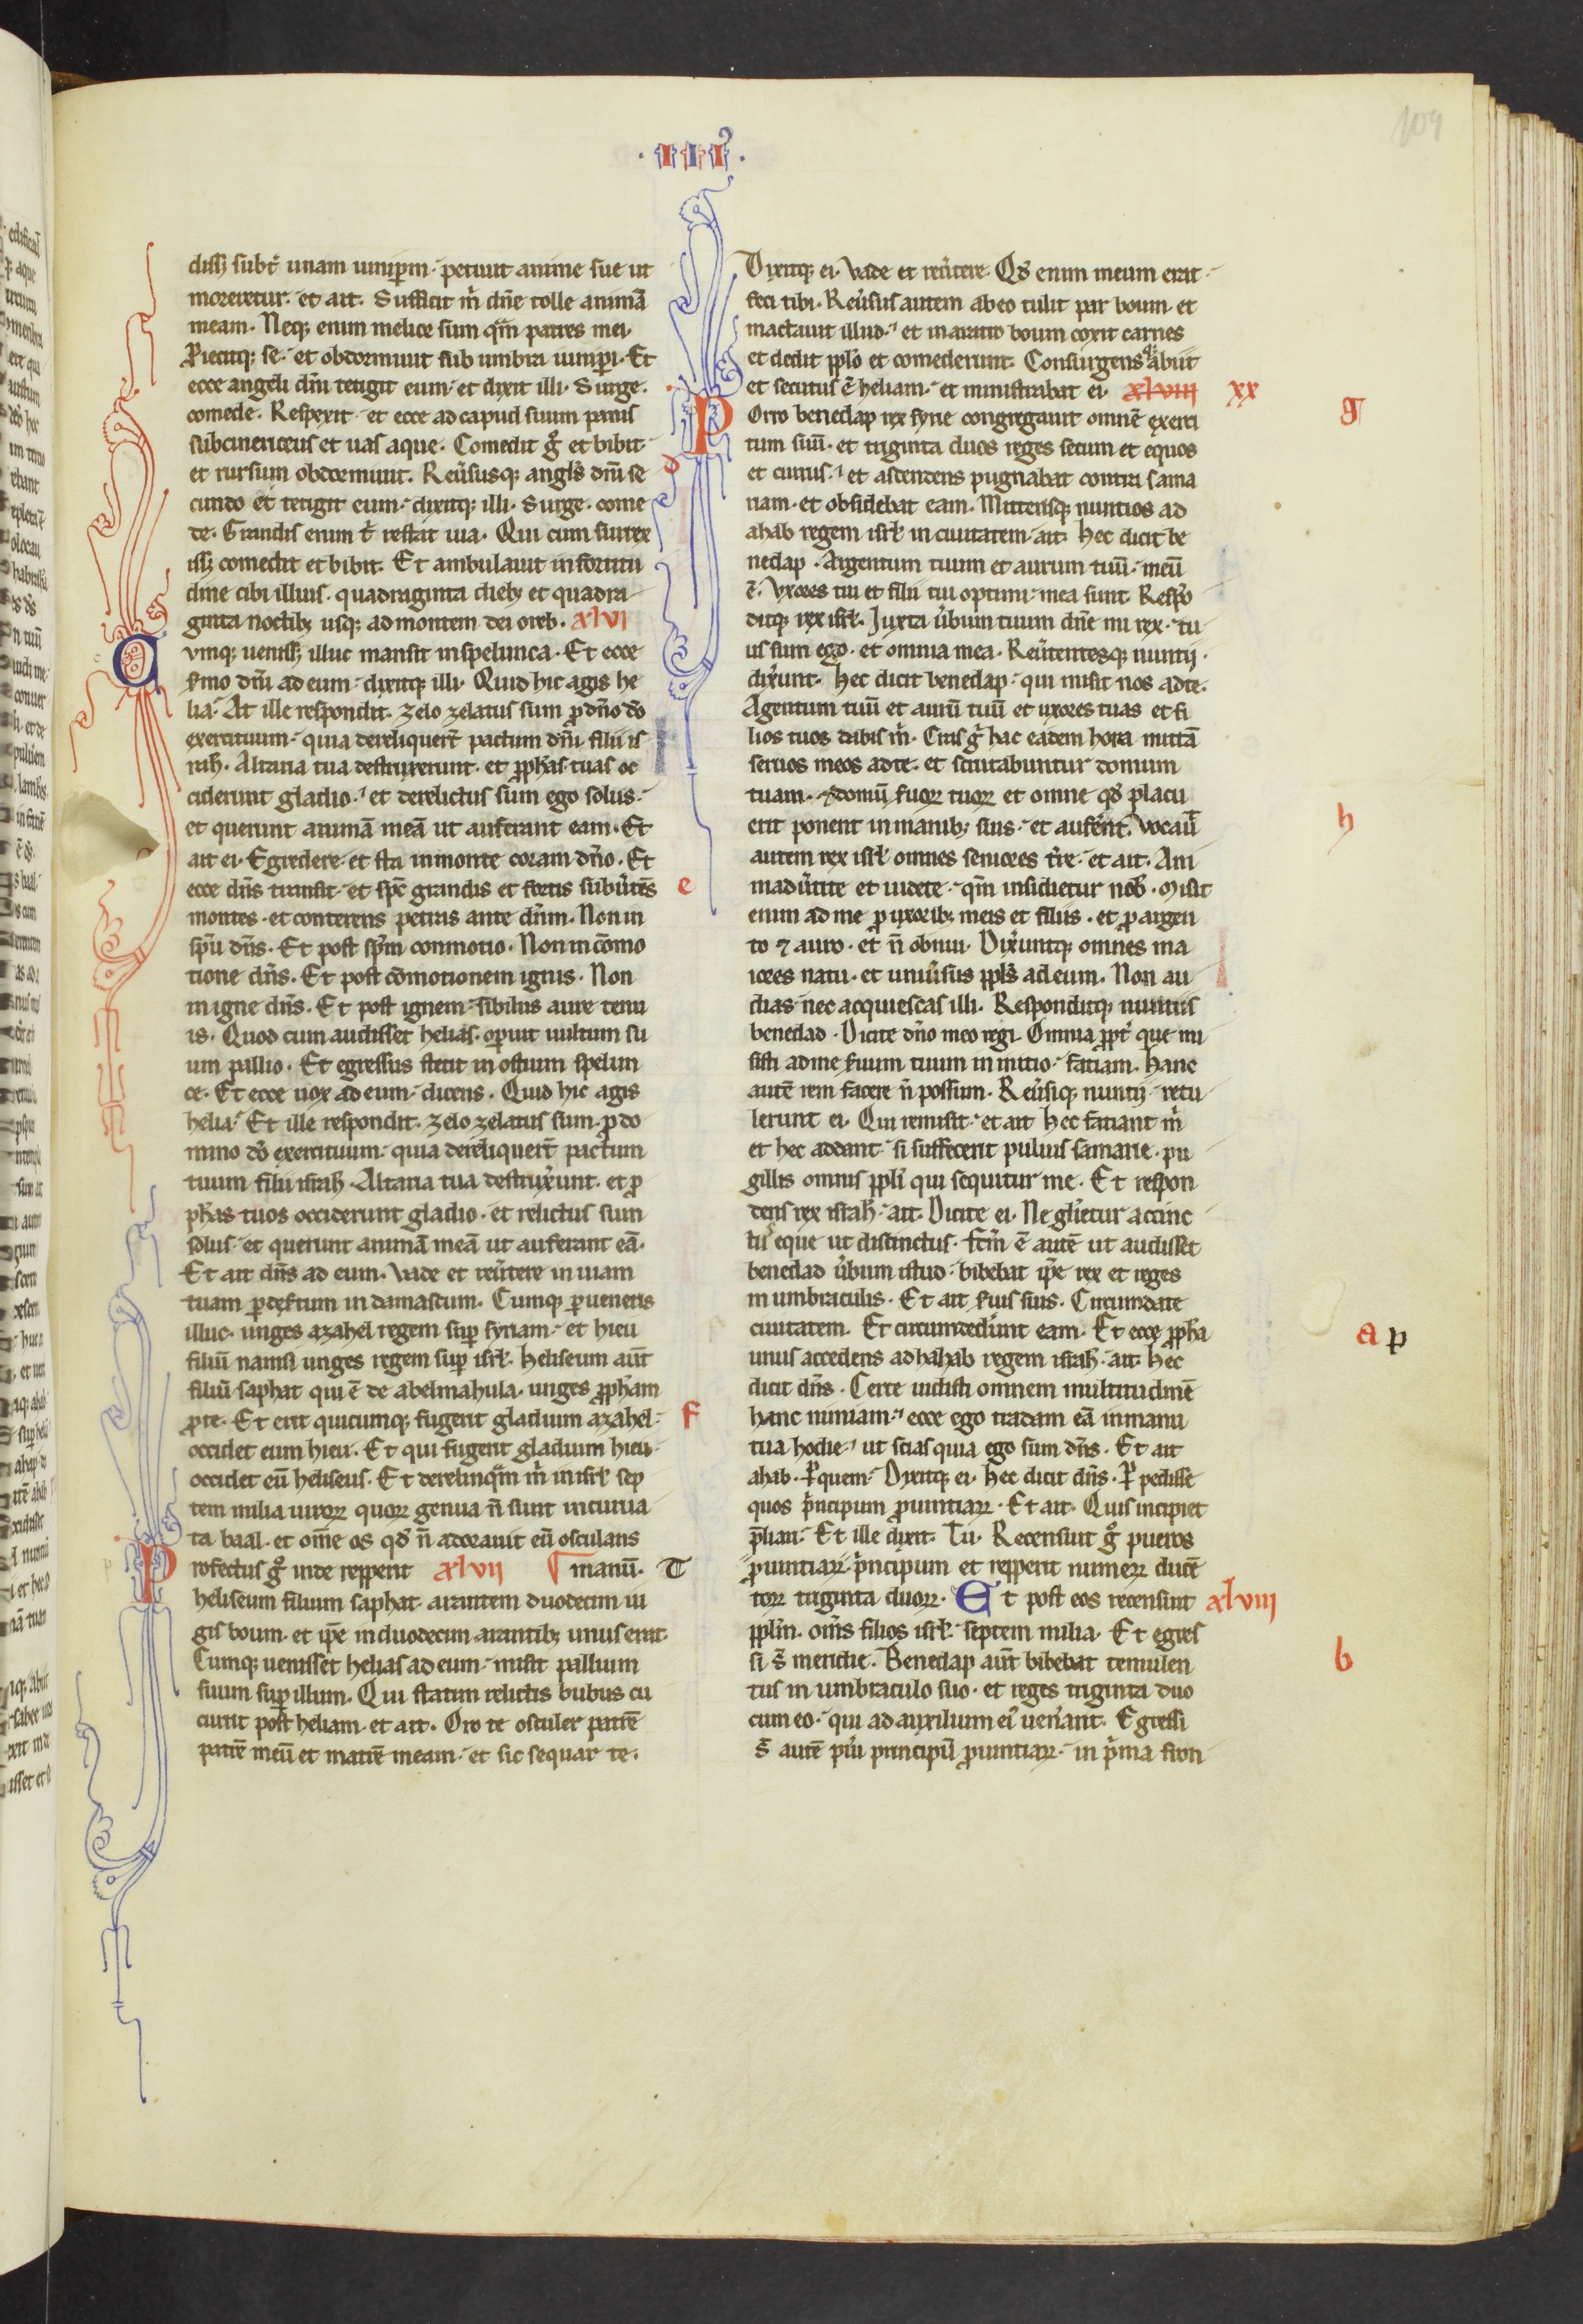 ·III·
109
dissꝫ subt̄ unam iunip̄m· petiuit anime sue ut
moreretur· et ait· Sufficit m̄ dn̄e tolle animā
meam· Neqꝫ enim melior sum qm̄ patres mei·
Proiecitqꝫ se· et obdormiuit sub umbra iunip̄i· Et
ecce angelꝰ dn̄i tetigit eum· et dixit illi· Surge·
comede· Respexit· et ecce ad capud suum panis
subcinericeus et uas aque· Comedit gͦ et bibit·
et rursum obdormiuit· Reuͥsusqꝫ angl̄s dn̄i se
cundo et tetigit eum· dixitqꝫ illi· Surge· come
de· Grandis enim t̄ restat uia· Qui cum surrex
issꝫ comedit et bibit· Et ambulauit in fortitu
dine cibi illius· quadraginta diebꝫ et quadra
ginta noctibꝫ usqꝫ ad montem dei oreb· xlvi
Cvmqꝫ uenissꝫ illuc mansit in spelunca· Et ecce
s̄mo dn̄i ad eum· dixitqꝫ illi· Quid hic agis he
lia· At ille respondit· zelo zelatus sum ꝓ dn̄o dō
exercituum· quia dereliquer̄t pactum dn̄i filii is
rah̄· Altaria tua destruxerunt· et ꝓph̄as tuas oc
ciderunt gladio· et derelictus sum ego solus·
et querunt animā meā ut auferant eam· Et
ait ei· Egredere· et sta in monte coram dn̄o· Et
ecce dn̄s transit· et sp̄c grandis et fortis subuͥtēs e
montes· et conterens petras ante dn̄m· Non in
sp̄u dn̄s· Et post sp̄m conmotio· Non in cōmo
tione dn̄s· Et post cōmotionem ignis· Non
in igne dn̄s· Et post ignem· sibilus aure tenu
is· Quod cum audisset helias· oꝑuit uultum su
um pallio· Et egressus stetit in ostium spelun
ce· Et ecce uox ad eum· dicens· Quid hic agis
helia· Et ille respondit· zelo zelatus sum· ꝓ do
mino dō exercituum· quia dereliquer̄t pactum
tuum filii israh̄· Altaria tua destrux̄unt· et ꝓ
ph̄as tuos occiderunt gladio· et relictus sum
solus· et querunt animā meā ut auferant eā·
Et ait dn̄s ad eum· Vade et reuͥtere in uiam
tuam ꝑ des̄tum in damascum· Cumqꝫ ꝑueneris
illuc· unges azahel regem suꝑ syriam· et hieu
filiū namsi unges regem suꝑ isrł· Heliseum aut̄
filiū saphat qui ē de abelmahula· unges ꝓph̄am
ꝓ te· Et erit quicumqꝫ fugerit gladium azahel· f
occidet eum hieu· Et qui fugerit gladium hieu·
occidet eū heliseus· Et derelinqm̄ m̄ in isrł sep
tem milia uiroꝝ quoꝝ genua n̄ sunt incurua
ta baal· et om̄e os qd̄ n̄ adorauit eū osculans
Profectus gͦ inde repperit xlvii manū· T
heliseum filium saphat arantem duodecim iu
gis boum· et ip̄e in duodecim arantibꝫ unus erat·
Cumqꝫ uenisset helias ad eum· misit pallium
suum suꝑ illum· Qui statim relictis bubus cu
currit post heliam· et ait· Oro te osculer patrē
patrē meū et matrē meam· et sic sequar te·
Dixitqꝫ ei· Vade et reuͥtere· Qd̄ enim meum erat·
feci tibi· Reuͥsus autem ab eo tulit par boum· et
mactauit illud· et in aratro boum coxit carnes
et dedit ppl̄o et comederunt· Consurgensqꝫ abiit
et secutus ē heliam· et ministrabat ei· xlviii xx
Porro benedap rex syrie congregauit omnē exerci g
tum suū· et triginta duos reges secum et equos
et currus· et ascendens pugnabat contra sama d
riam· et obsidebat eam· Mittensqꝫ nuntios ad
ahab regem isrł in ciuitatem· ait· Hec dicit be
nedap· Argentum tuum et aurum tuū· meū
ē· Vxores tui et filii tui optimi· mea sunt· Respō
ditqꝫ rex isrł· Juxta uͥbum tuum dn̄e mi rex· tu
us sum ego· et omnia mea· Reuͥtentesqꝫ nuntij·
dix̄unt· Hec dicit benedap· qui misit nos ad te·
Agentum tuū et aurū tuū et uxores tuas et fi
lios tuos dabis m̄· Cras gͥ hac eadem hora mittā
seruos meos ad te· et scrutabuntur domum
tuam· ⁊ domū s̄uoꝝ tuoꝝ et omne qd̄ placu
erit ponent in manibꝫ suis· et aufer̄nt· Vocauͥ h
autem rex isrł omnes seniores t̄re· et ait· Ani
maduͥtite et uidete· qm̄ insidietur nob̄· Misit
enim ad me ꝓ uxoribꝫ meis et filiis· et ꝓ argen
to ⁊ auro· et n̄ obnui· Dix̄untqꝫ omnes ma
iores natu· et uniuͥsus ppl̄s ad eum· Non au
dias· nec acquiescas illi· Responditqꝫ nuntiis
benedad· Dicite dn̄o meo regi· Omnia ꝓpt̄ que mi
sisti ad me s̄uum tuum in initio· fatiam· Hanc
autē rem facere n̄ possum· Reuͥsiqꝫ nuntij· retu
lerunt ei· Qui remisit· et ait Hec fatiant m̄
et hec addant· si suffecerit puluis samarie· pu
gillis omnis ppl̄i qui sequitur me· Et respon
dens rex israh̄· ait· Dicite ei· Ne glīetur accinc
tꝰ eque ut discinctus· fctm̄ ē autē ut audisset
benedad uͥbum istud· bibebat ip̄e rex et reges
in umbraculis· Et ait s̄uis suis· Circumdate
ciuitatem· Et circumded̄unt eam· Et ecce ꝓph̄a a p
unus accedens ad hahab regem israh̄· ait· Hec
dicit dn̄s· Certe uidisti omnem multitudinē
hanc nimiam· ecce ego tradam eā in manu
tua hodie· ut scias quia ego sum dn̄s· Et ait
ahab· Ꝑ quem· Dixitqꝫ ei· Hec dicit dn̄s· Ꝑ pedisse
quos pͥncipum ꝓuintiaꝝ· Et ait· Quis incipiet
p̄liari· Et ille dixit· Tu· Recensuit gͦ pueros
ꝓuintiaꝝ pͥncipum et repperit numeꝝ ducē
toꝝ triginta duoꝝ· Et post eos recensiuit xlviii
ppl̄m· om̄s filios isrł· septem milia· Et egres
si s̄ meridie· Benedap aut̄ bibebat temulen b
tus in umbraculo suo· et reges triginta duo
cum eo· qui ad auxilium eiꝰ uen̄ant· Egressi
s̄ autē pūi principū ꝓuintiaꝝ· in pͥma fron